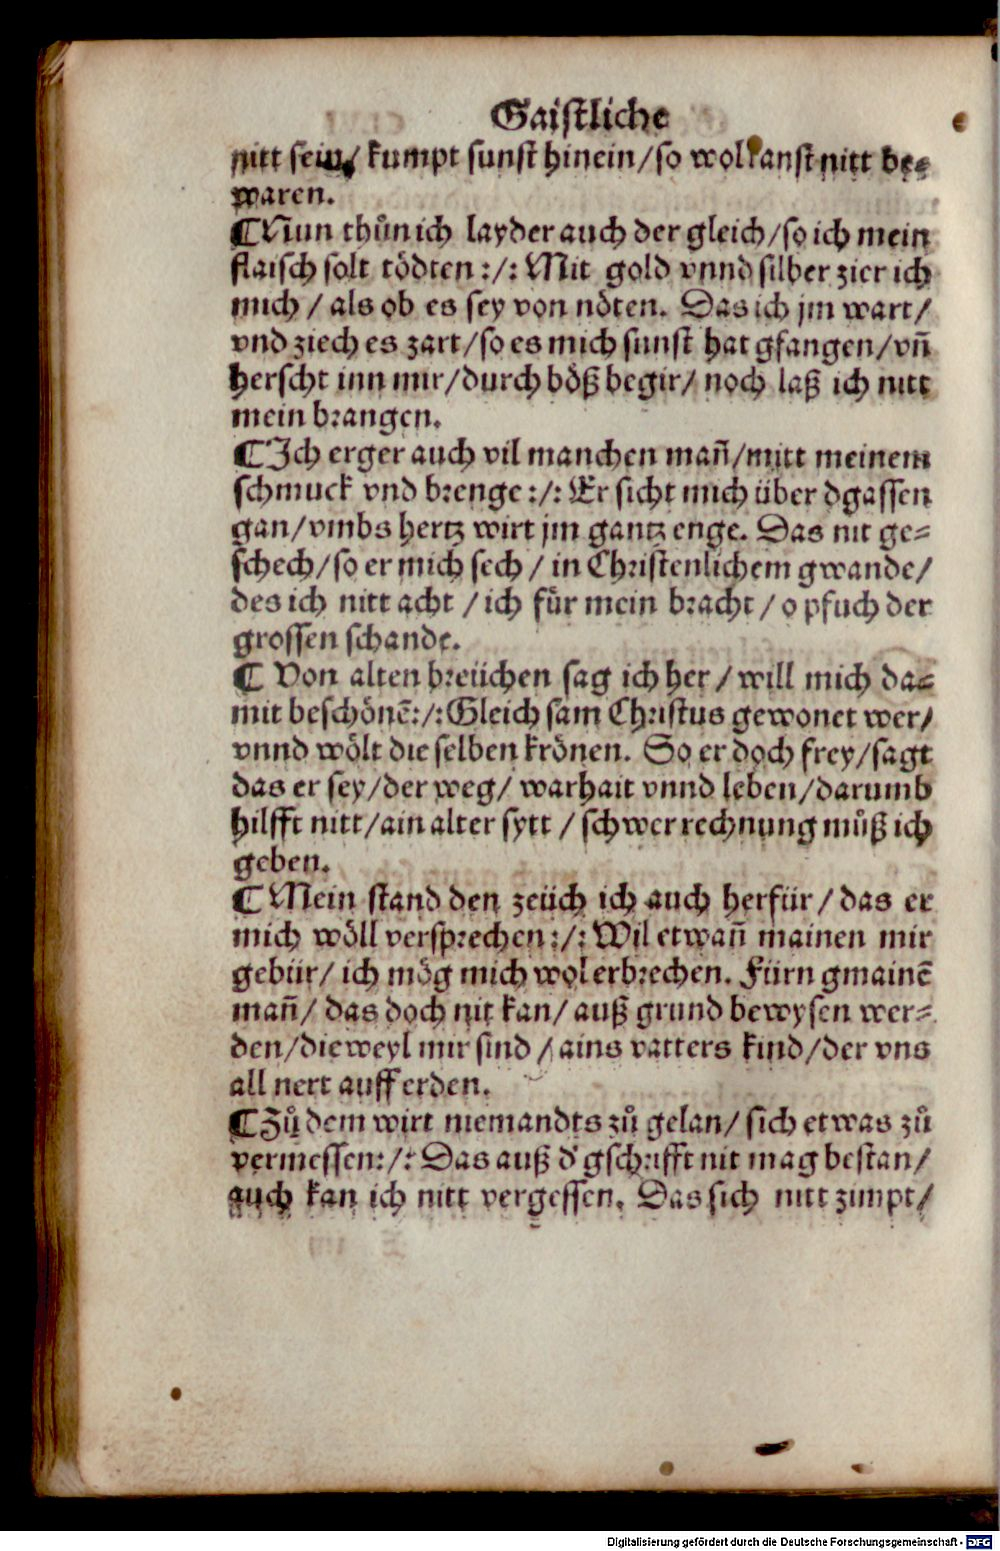 Gaistliche
nitt sein / kumpt sunst hinein / so wol kanst nitt be⸗
waren.
¶Nun thůn ich layder auch der gleich / so ich mein
flaisch solt tödten :/: Mit gold vnnd silber zier ich
mich / als ob es sey von nöten. Das ich jm wart /
vnd ziech es zart / so es mich sunst hat gfangen / vñ
herscht inn mir / durch böß begir / noch laß ich nitt
mein brangen.
¶Ich erger auch vil manchen mañ / mitt meinem
schmuck vnd brenge :/: Er sicht mich über dgassen
gan / vmbs hertz wirt jm gantz enge. Das nit ge⸗
schech / so er mich sech / in Christenlichem gwande /
des ich nitt acht / ich für mein bracht / o pfuch der
grossen schande.
¶ Von alten breüchen sag ich her / will mich da⸗
mit beschönē:/: Gleich sam Christus gewonet wer /
vnnd wölt die selben krönen. So er doch frey / sagt
das er sey / der weg / warhait vnnd leben / darumb
hilfft nitt / ain alter sytt / schwer rechnung můß ich
geben.
¶Mein stand den zeüch ich auch herfür / das er
mich wöll versprechen :/: Wil etwañ mainen mir
gebür / ich mög mich wol erbrechen. Fürn gmainē
mañ / das doch nit kan / auß grund bewysen wer⸗
den / die weyl mir sind / ains vatters kind / der vns
all nert auff erden.
¶Zů dem wirt niemandts zů gelan / sich etwas zů
vermessen:/: Das auß d' gschrifft nit mag bestan /
auch kan ich nitt vergessen. Das sich nitt zimpt /
Digitalisierung gefördert durch die Deutsche Forschungsgemeinschaft - DFG